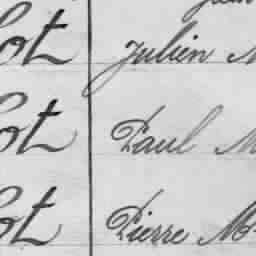 ot Julien M
ot Paul M
ot Pierre Mo